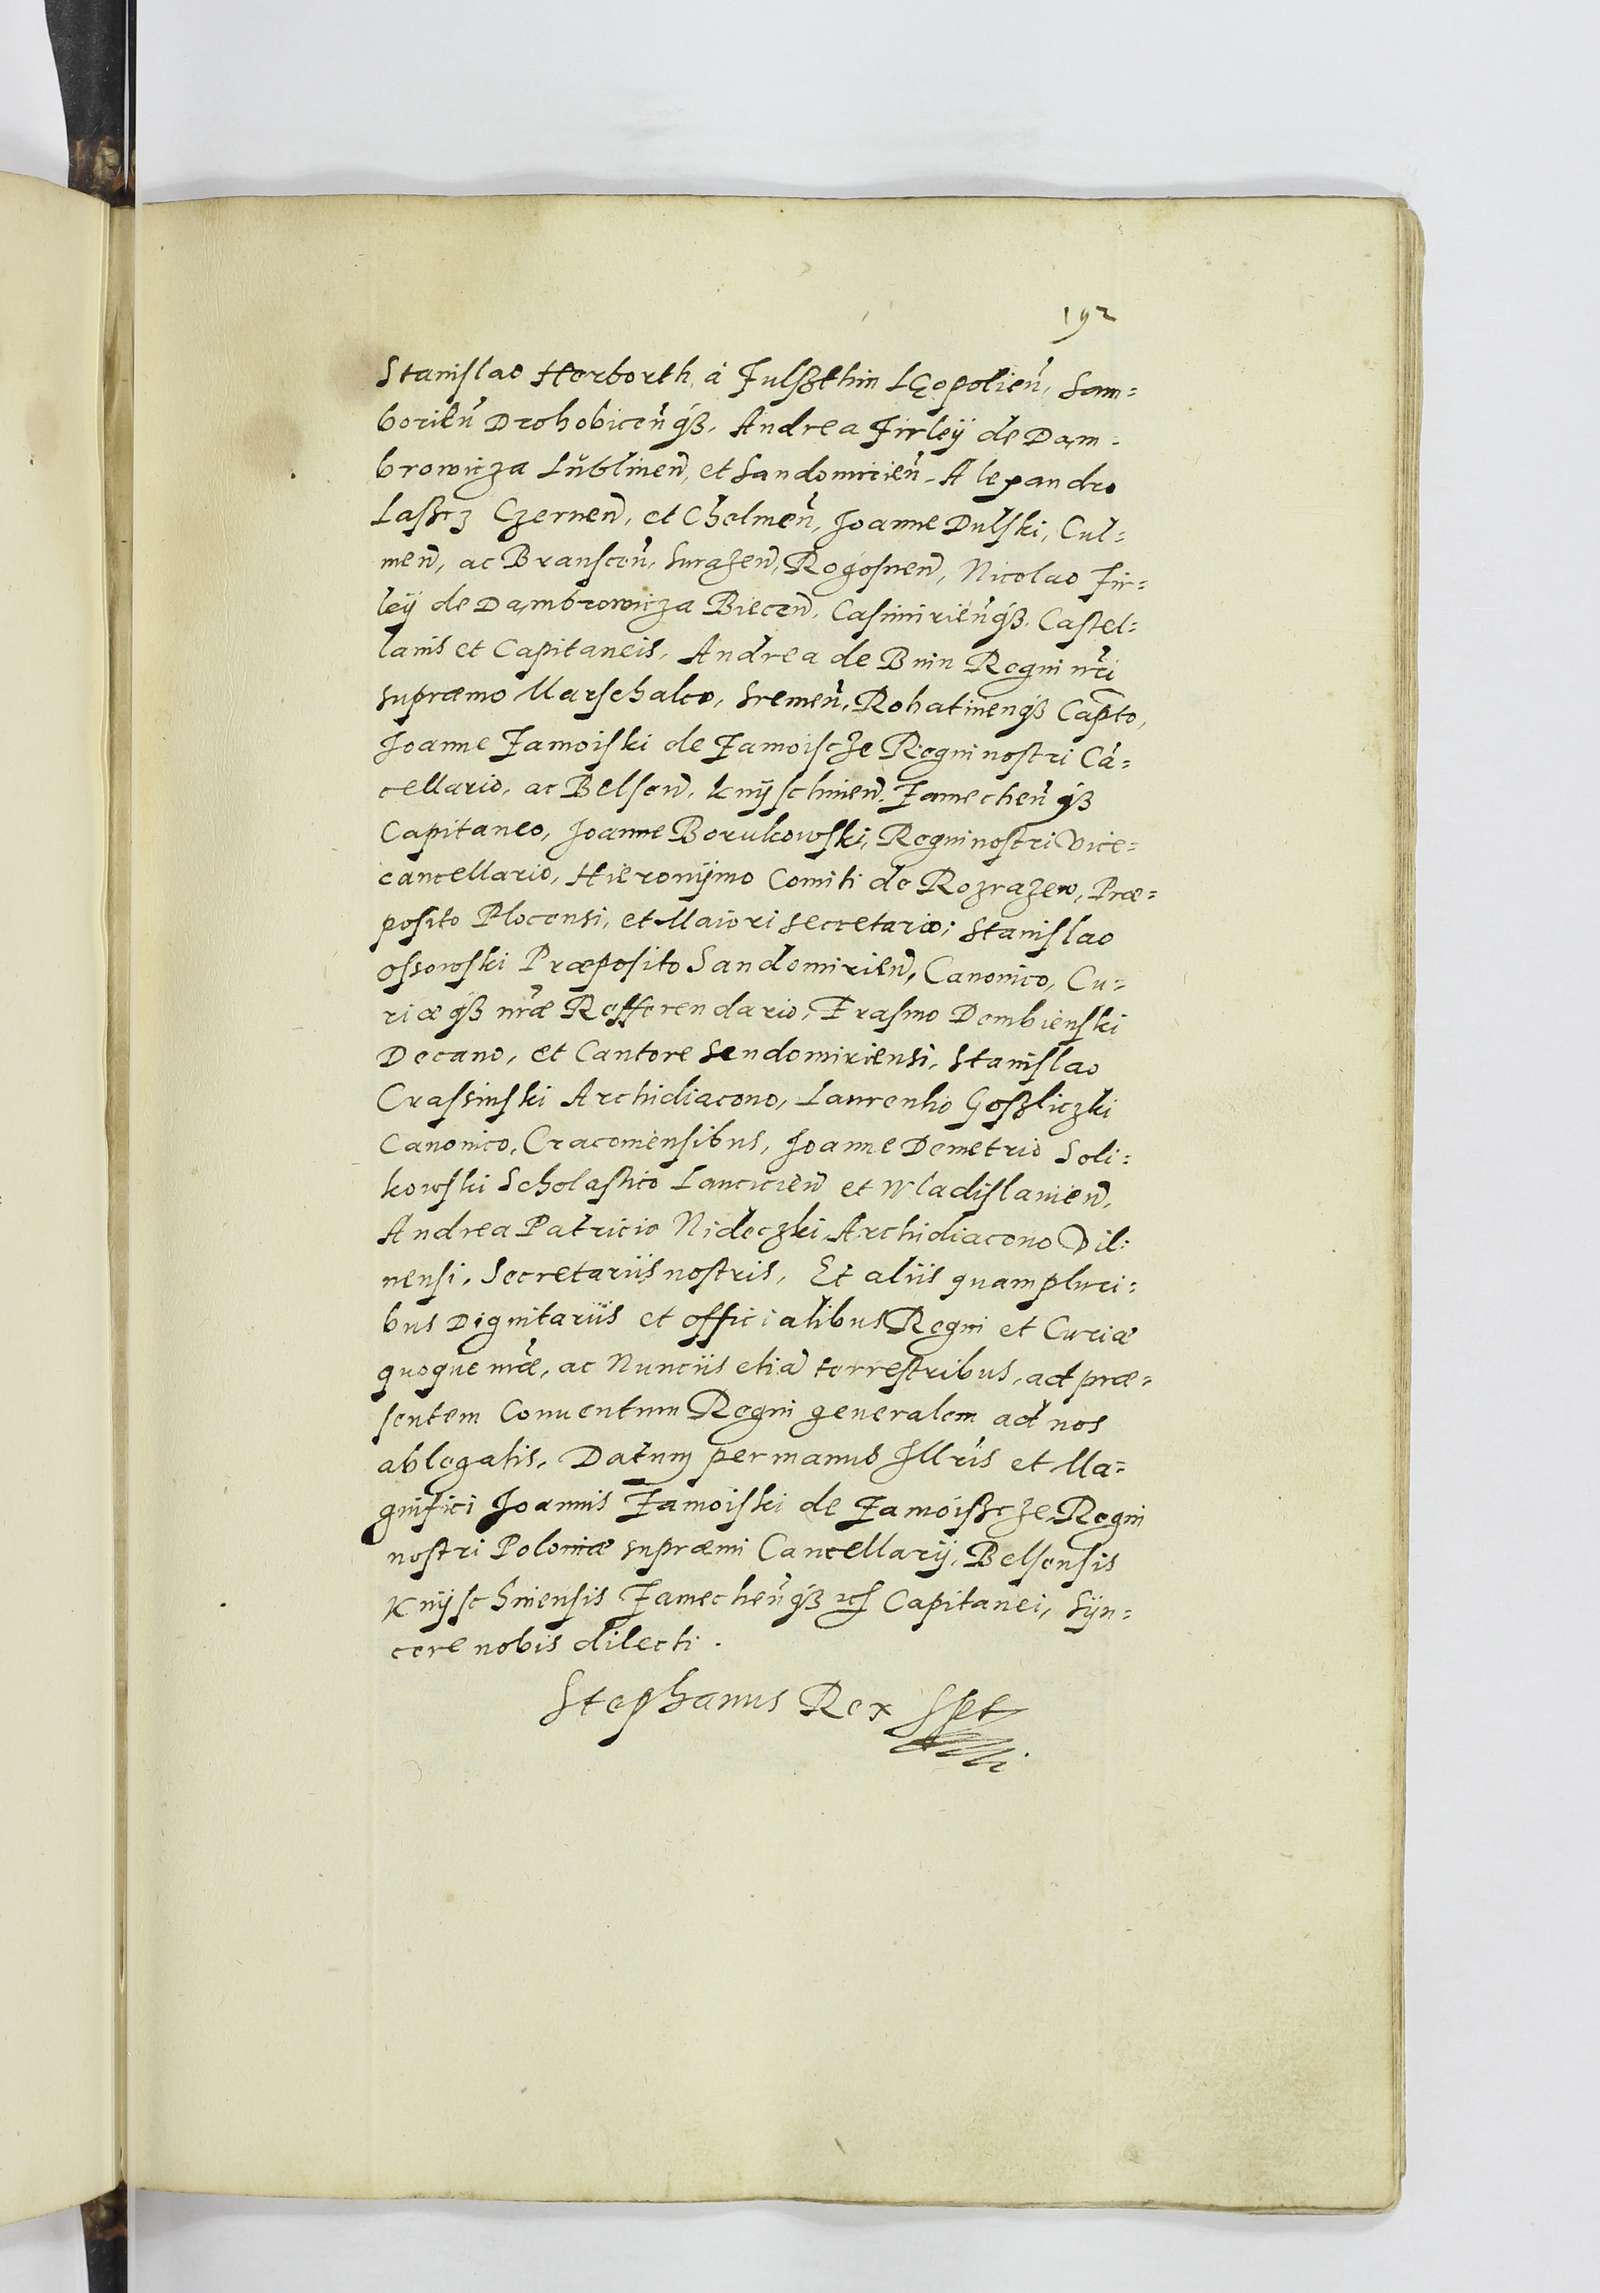 192
Stanislao Herborth, à Fulsßthin Leopolieñ, Sam=
borieñ Drohobiceñ q́ß, Andrea Firleÿ de Dam-
browicza Lŭblineñ, et Sandomirieñ, Alexandro
Lasßcz Czerneñ, et Chelmeñ, Joanne Dulski, Cul=
meñ, ac Bransceñ, Surazeñ, Rogosneñ, Nicolao Fir=
leÿ de Dambrowicza Bieceñ, Casimirieñ q́ß, Castel=
lanis et Capitaneis, Andrea de Bnin Regni nr̃i
supræmo Marschalco, Sremeñ, Rohatineñ q́ß Capto,
Joanne Zamoiski de Zamoiscze Regni nostri Cã=
cellario, ac Belseñ, Knÿschineñ, Zamecheñ q́ß
Capitaneo, Joanne Borukowski, Regni nostri Vice=
cancellario, Hieronÿmo Comiti de Rozrazew, Præ=
posito Plocensi, et Maiori Secretario; Stanislao
Ossowski Præposito Sandomirieñ, Canonico, Cu=
riæ q́ß nr̃æ Refferendario, Erasmo Dembienski
Decano, et Cantore Sendomiriensi, Stanislao
Crassinski Archidiacono, Laurentio Gosßliczki
Canonico, Cracoviensibus, Joanne Demetrio Soli=
kowski Scholastico Lancicieñ et Wladislavieñ,
Andrea Patricio Nideczki Archidiacono Vil=
nensi, Secretariis nostris, Et aliis quampluri=
bus Dignitariis et officialibus Regni et Curiæ
quoque nr̃æ, ac Nunciis etiã terrestribus, ad præ=
sentem Conventum Regni generalem ad nos
ablegatis. Datum per manus Illr̃is et Ma=
gnifici Joannis Zamoiski de Zamoisßcze, Regni
nostri Poloniæ supræmi Cancellarÿ, Belsensis
Knÿschinensis Zamecheñ q́ß Capitanei, Sÿn=
cere nobis dilecti.
Stephanus Rex